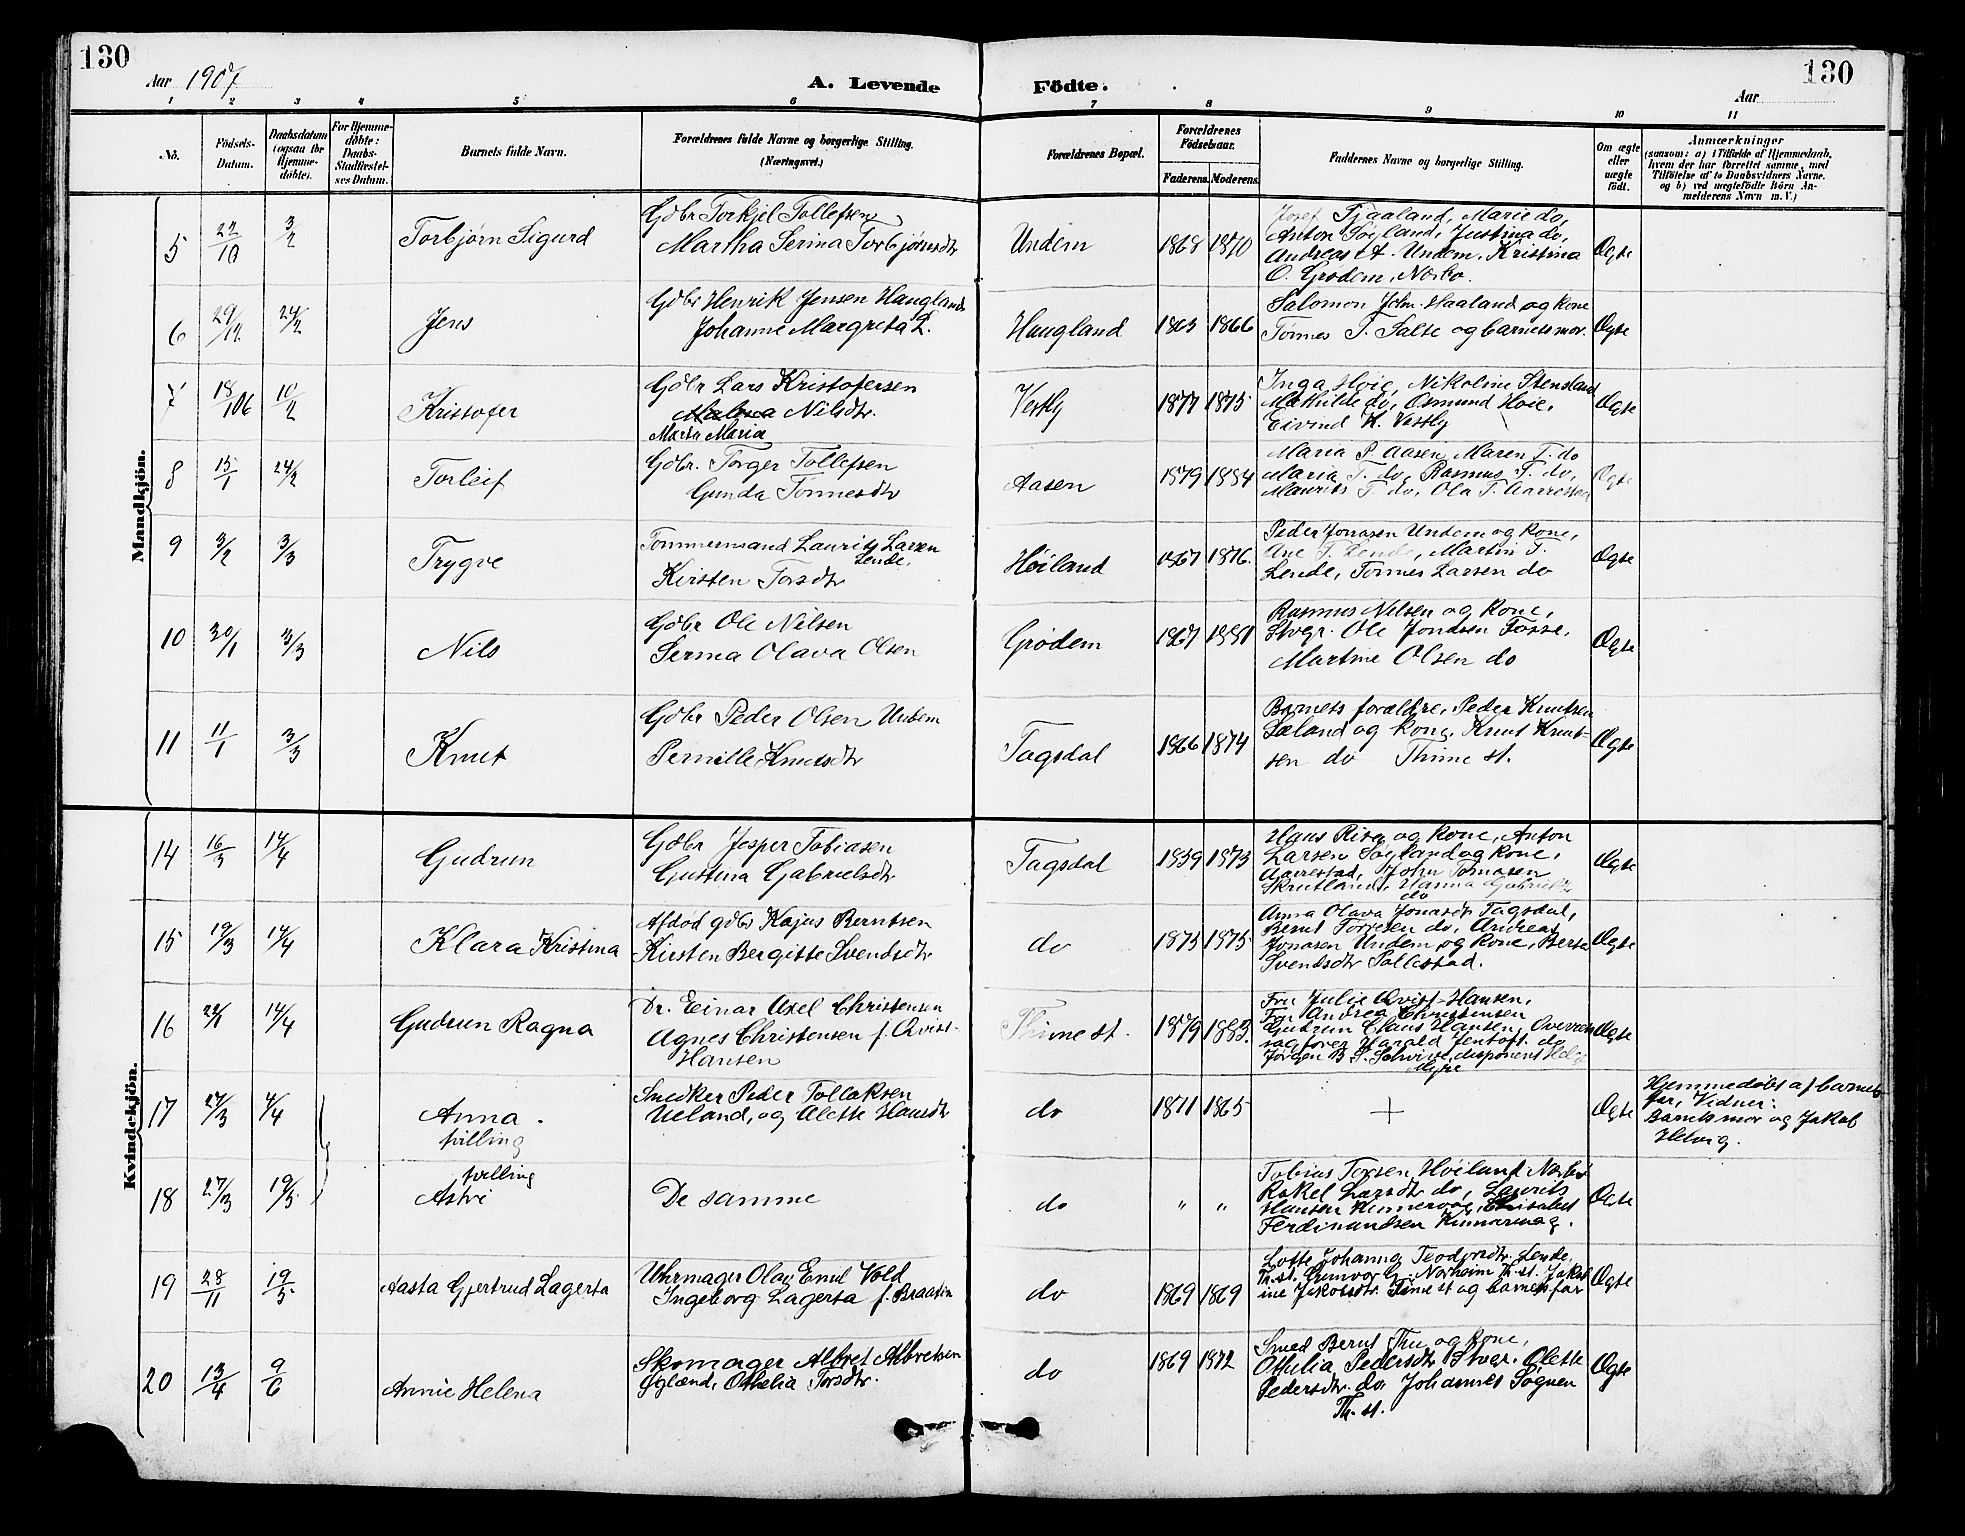 130
Aar 1907
A. Levende Födte.
130
Aar
1 2 3 4 5 6 7 8 9 10 11
No.
Födsels-Datum.
Daabsdatum (ogsaa for Hjemme-döbte).
For Hjemme-döbte: Daabs-Stadfæstel-ses Datum.
Barnets fulde Navn.
Forældrenes fulde Navne og borgerlige Stilling.
(Næringsvei.)
Forældrenes Bopæl.
Forældrenes Födselsaar.
Faderens. Moderens.
Faddernes Navne og borgerlige Stilling.
Om ægte eller uægte født.
Anmærkninger
(saasom: a) i Tilfælde af Hjemmedaab, hvem der har forrettet samme, med Tilföielse af to Daabsvidners Navne. og b) ved uægtefödte Börn An-melderens Navn m. V.)
Mandkjön.
5 22/10 3/2 Torbjørn Sigurd
Gdbr Torkjel Tollefsen
Martha Serina Torbjørnsdtr
Undem 1868 1870
Josef Tjaaland, Marie do,
Anton Søyland, Justina do,
Andreas A. Undem, Kristina
O. Grødem, Nærbø.
Ægte
6 29/12 24/2 Jens
Gdbr Henrik Jensen Haugland
Johanne Margreta L.
Haugland 1863 1866
Salomon Joh. Haaland og kone
Tønnes T. Salte og barnets mor.
Ægte
7 18/1 06 10/2 Kristofer
Gdbr Lars Kristofersen
Nilsdtr.
Marta Maria
Vestly 1877 1875
Inga Høie, Nikoline Stensland
Mathilde do, Osmund Høie,
Eivind K. Vestly
Ægte
8 15/1 24/2 Torleif
Gdbr. Torger Tollefsen
Gunda Tønnesdtr
Aasen 1879 1884
Maria P. Aasen, Maren T. do
Maria T. do, Rasmus T. do,
Maurits T. do, Ola T. Aarrestad
Ægte
9 3/2 3/3 Trygve
Tømmermand Laurits Larsen
Lende,
Kirsten Torsdtr
Høiland 1867 1876.
Peder Jonasen Undem og kone,
Ane T. Lende, Martin T.
Lende, Tønnes Larsen do
Ægte
10 30/1 3/3 Nils
Gdbr Ole Nilsen
Serina Olava Olsen
Grødem 1867 1881
Rasmus Nilsen og kone,
Stvgr. Ole Jondsen Fosse,
Martine Olsen do
Ægte
11 11/1 3/3 Knut
Gdbr Peder Olsen Undem
Pernille Knutsdtr
Tagsdal 1866 1874
Barnets forældre, Peder Knutsen
Sæland og kone, Knut Knut-
sen do Thime st.
Ægte
Kvindekjön.
14 16/3 14/4 Gudrun
Gdbr Jesper Tobiasen
Gustina Gabrielsdtr
Tagsdal 1859 1873
Hans Risa og kone, Anton
Larsen Søyland og kone,
Aarrestad, John Tomasen
Skrutland, Hanna Gabrielsdtr
do
Ægte
15 19/3 14/4 Klara Kristina
Afdød gdbr Kajus Berntsen
Kirsten Bergitte Svendsdtr
do 1875 1875
Anna Olava Jonasdtr Tagsdal,
Bernt Torresen do, Andreas
Jonasen Undem og kone, Berta
Svendsdtr Sollestad.
Ægte
16 14/4 Gudrun Ragna
Dr. Einar Axel Christensen
Agnes Christensen f. Qvist-
Hansen
Thime st. 1879 1883.
Fru Julie Qvist-Hansen,
Fru Andrea Christensen
Gudrun Claus Hansen, Overrets
sagfører Harald Jentoft do
Jørgen B. S. disponent Helge
Myre
Ægte
17 27/3 4/4 Anna.
tvilling
Snedker Peder Tollaksen
Ueland, og Alette Hansdtr
do 1871 1865
+
Ægte
Hjemmedøbt af barnets
far, Vidner:
Barnets mor og Jakob
Helvig.
18 27/3 19/5
tvilling
Astri
De samme
do " "
Tobias Torsen Høiland Nærbø
Rakel Larsdtr do, Laurits
Hansen Kinnervag, Elisabet
Ferdinandsen Kinnarvag.
Ægte
19 28/11 19/5 Aasta Gjertrud Lagerta
Uhrmager Olav Emil Vold
Ingeborg Lagerta f. Braaten
do 1869 1869
Lotte Johanna Teodorsdtr Lende
Th. st. Gunvor G. Norheim Th. st. Jakob
ine Jakobsdtr. Time st og barnets far
Ægte
20 13/4 9/6 Annie Helena
Skomager Albret Albretsen
Øgland, Othelia Torsdtr.
do 1869 1872
Smed Bernt Thu og kone,
Othelia Pedersdtr Stvgr. Olette
Pedersdtr. do, Johannes Sognen
Th. st.
Ægte